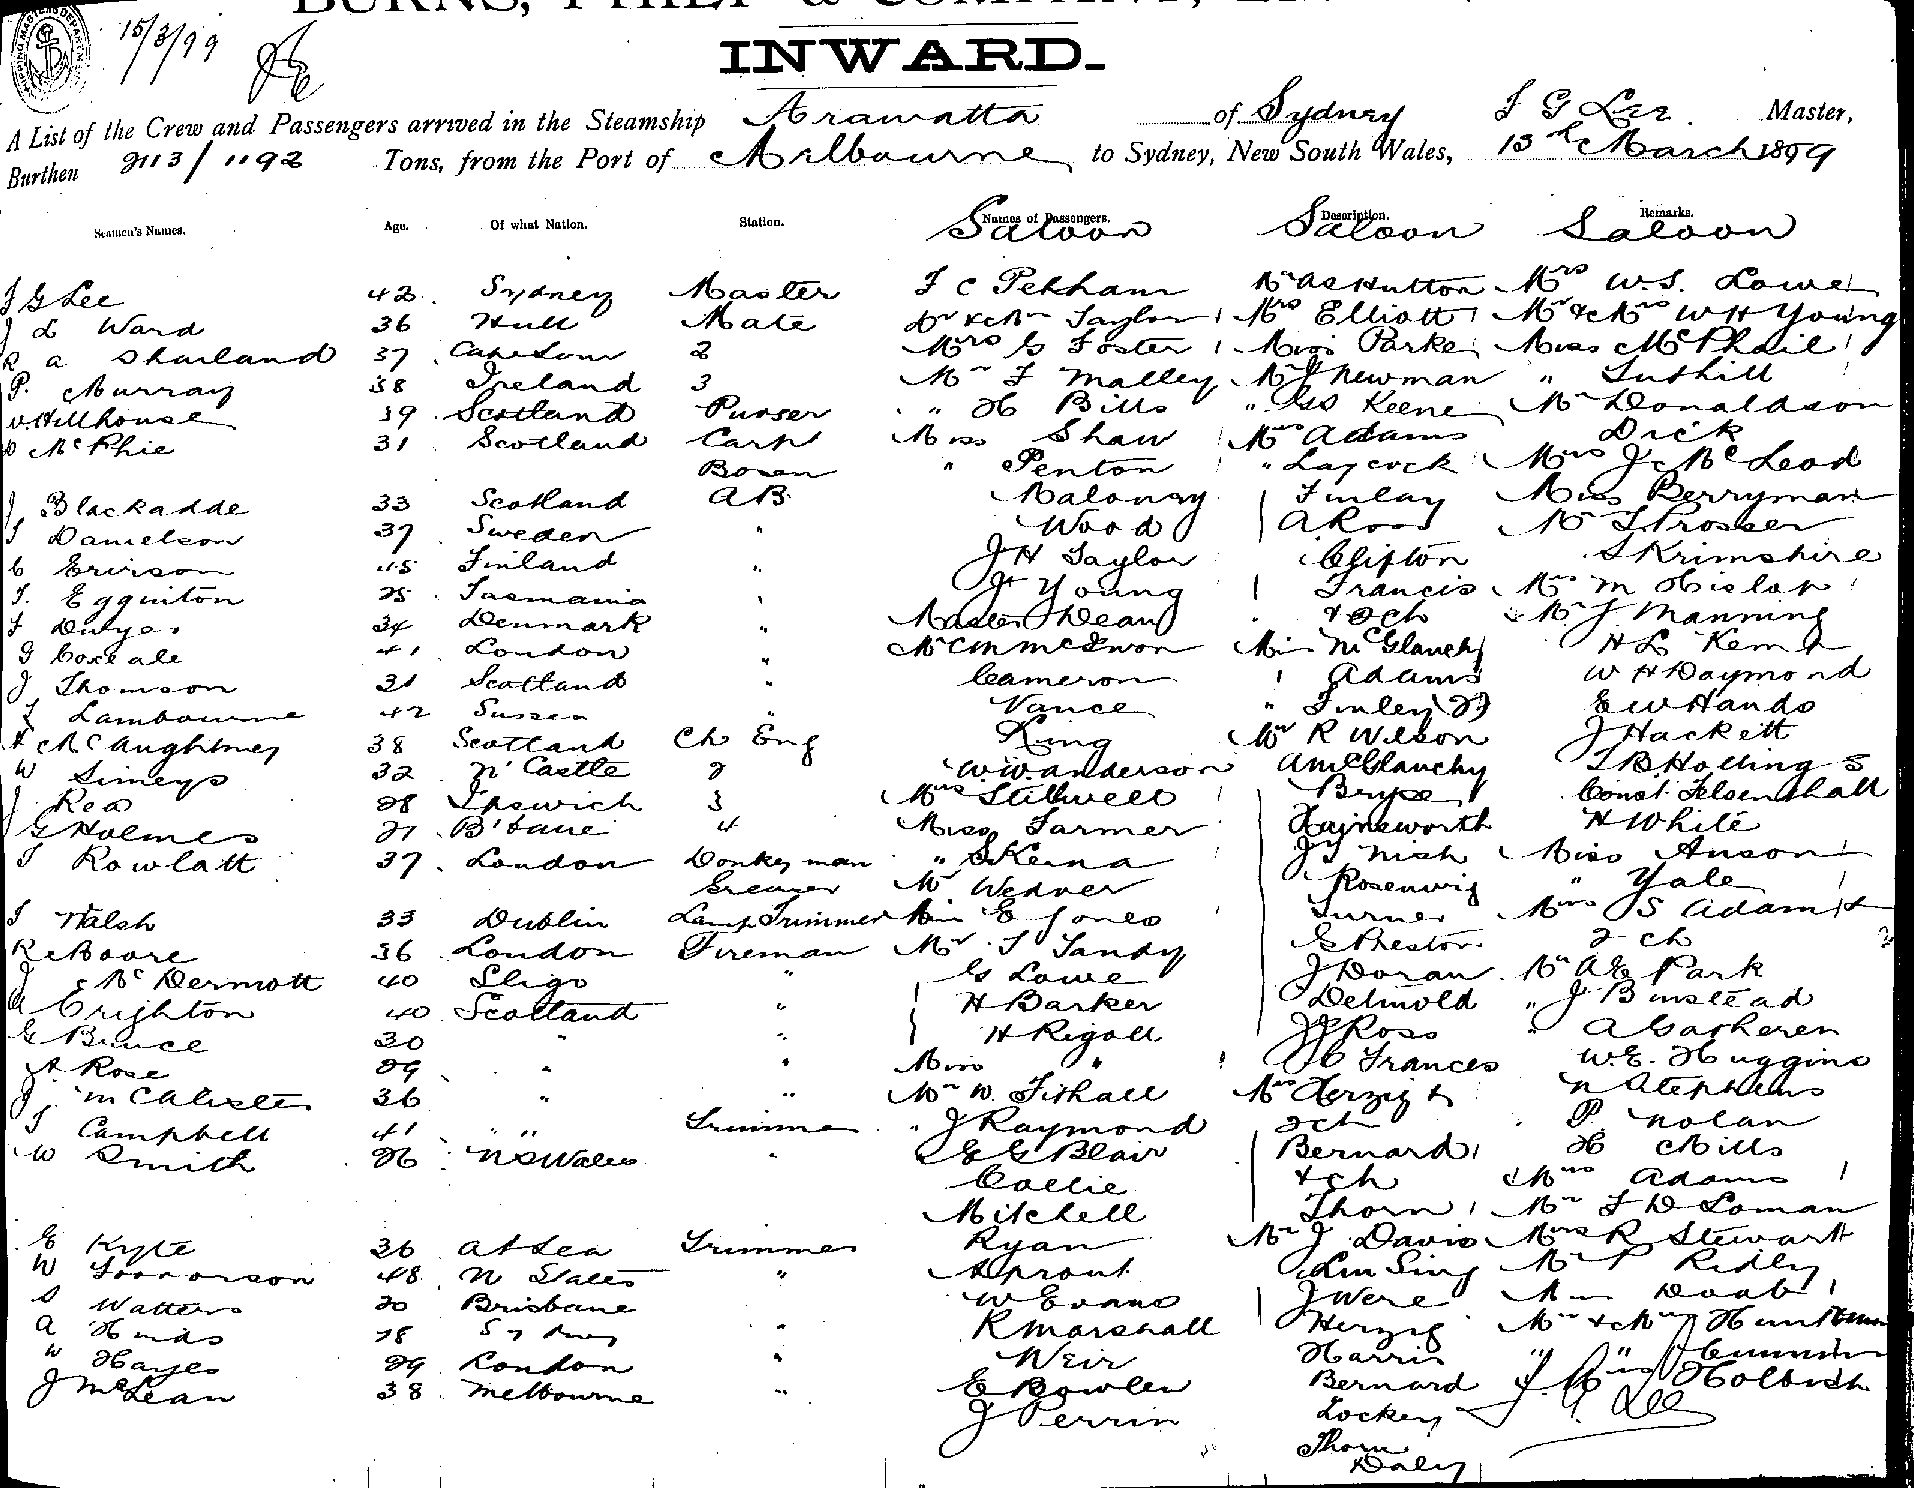 BURNS, PHILP & COMPANY,
15/3/99
INWARD.
A List of the Crew and Passengers arrived in the Steamship Arawatta of Sydney J G Lee Master,
Burthen 2113/1192 Tons, from the Port of Melbourne to Sydney, New South Wales, 13th March 1899
Seamen's Names. Age. Of what Nation. Station. Names of Passengers. Description. Remarks.
Saloon Saloon Saloon
J G Lee 42 Sydney Master J C Pekham Mr A S Hutton Mrs W. S. Lowe
J L Ward 36 Hull Mate Dr & Mrs Taylor Mrs Elliott Mr & Mrs W H Young
R A Sharland 37 2 Mrs G Foster Miss Parke Miss McPhail
P. Murray 38 Ireland 3 Mr F Malley Mr J Newman " Tuthill
Hillhouse 39 Scotland Purser " H Bills " Keene Mr Donaldson
D McPhie 31 Scotland Carp Miss Shaw Mrs Adams Dick
Bosen " Penton " Laycock Mrs J McLeod
J Blackadde 33 Scotland AB Maloney Finlay Miss Berryman
J Danielson 37 Sweden " Wood A Ross Mr J Prosser
C Ericson 45 Finland " J H Taylor Clifton S Krimshire
J. Egginton 25 Tasmania " Jas Young Francis Mrs M Hislop
J Dwyer 34 Denmark " Master Dean & 2 ch Mr J Manning
G Coxeale 41 London " Mr C M McEwon Miss McGlauchy H L Kemp
J Thomson 31 Scotland " Cameron " Adams W H Daymond
J Lambourne 42 Sussex " Vance " Finley (2) E W Hands
H McCaughtney 38 Scotland Ch Eng King Mr R Wilson J Hackett
W Simeys 32 N'Castle 2 W. W. Anderson A McGlauchy J B Hollings
J Rea 28 Ipswich 3 Mrs Stillwell Bryse Const. Felsenthall
J G Holmes 27 B'bane 4 Miss Farmer Hainsworth H White
J Rowlatt 37 London Donkeyman " S Kerna Js Nish Miss Anson
Greaser Mr Weaver Rosenwig " Yale
J Walsh 33 Dublin Lamp Trimmer Miss E Jones Turner Mrs S Adams &
R Moore 36 London Fireman Mr J Tandy G Preston 2 ch
J McDermott 40 Sligo " G Lowe J Doran Mr A E Park
A Crighton 40 Scotland " H Barker Detmold " J Binstead
G Bruce 30 " " H Rigall J J Ross " A Gatheren
A Rose 29 " " Miss " C Frances W. E. Huggins
J. McAlister 36 " " Mr W. Tithall Mrs Herzig & N Stephens
J Campbell 41 " Trimmer " J Raymond 2 ch P. Nolan
W Smith 26 N S Wales " E G Blair Bernard H Mills
Collie & ch Mrs Adams
Mitchell Thorn Mr F D Loman
E Kyte 36 At Sea Trimmer Ryan Mr J Davis Mrs R Stewart
W 48 N States " Sprout Lin Sing Mr P Ridley
S Watters 20 Brisbane W Evans J Were Miss Doab
A Hinds 28 Sydney " R Marshall Herzig Mr & Mrs
W Hayes 29 London " Weir Harris " "
J McLean 38 Melbourne " E Bowlen Bernard Holbush
J Perrin Lockey J G Lee
Thorn
Daley